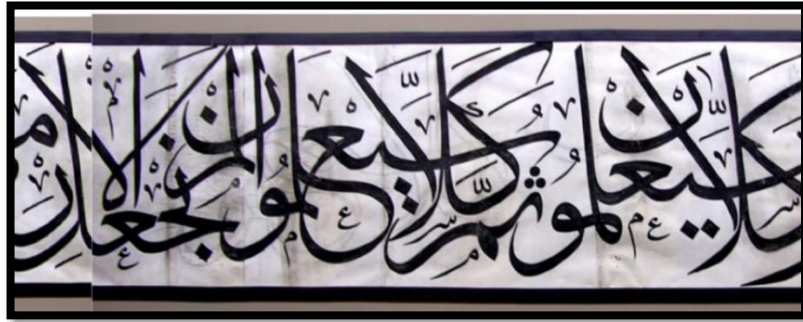 كلا سيعلمون ثم كلا سيعلمون الم نجعل الارض